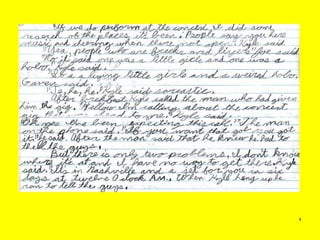 "If we do perform at the concert I did some
reserch of the places its been. People say you here
music and shering when there not open. Kyle said
"Yea, people who are freek and liyers" Joe said
"No it said one was a little girl and one was a
hobo. Kyle said.
"So a living little girls and a weird hobo.
Garver said.
"He, he, he" Kyle said sarcastic.
After breakfast Kyle called the man who had given
him the gig. "Hello: I'm calling about the concert
gig to me." Kyle said.
this been expecting this call." The man
on the phone said. "If you want that gig you got
it." said. After the man said that he knew he had to
tell the guys.
"But there is only two problems, I dont know
where its at and I have no way to get there. Kyle
said. Its in Nashville and a set for you in six
days at twelve O clock A.M. When Kyle hung up he
ran to tell the guys.